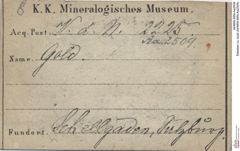 K.K. Mineralogisches Museum.
Acq. Post. V. d. N. 2225
2509.
Name: Gold.
Fundort. Schellgaden, Salzburg.